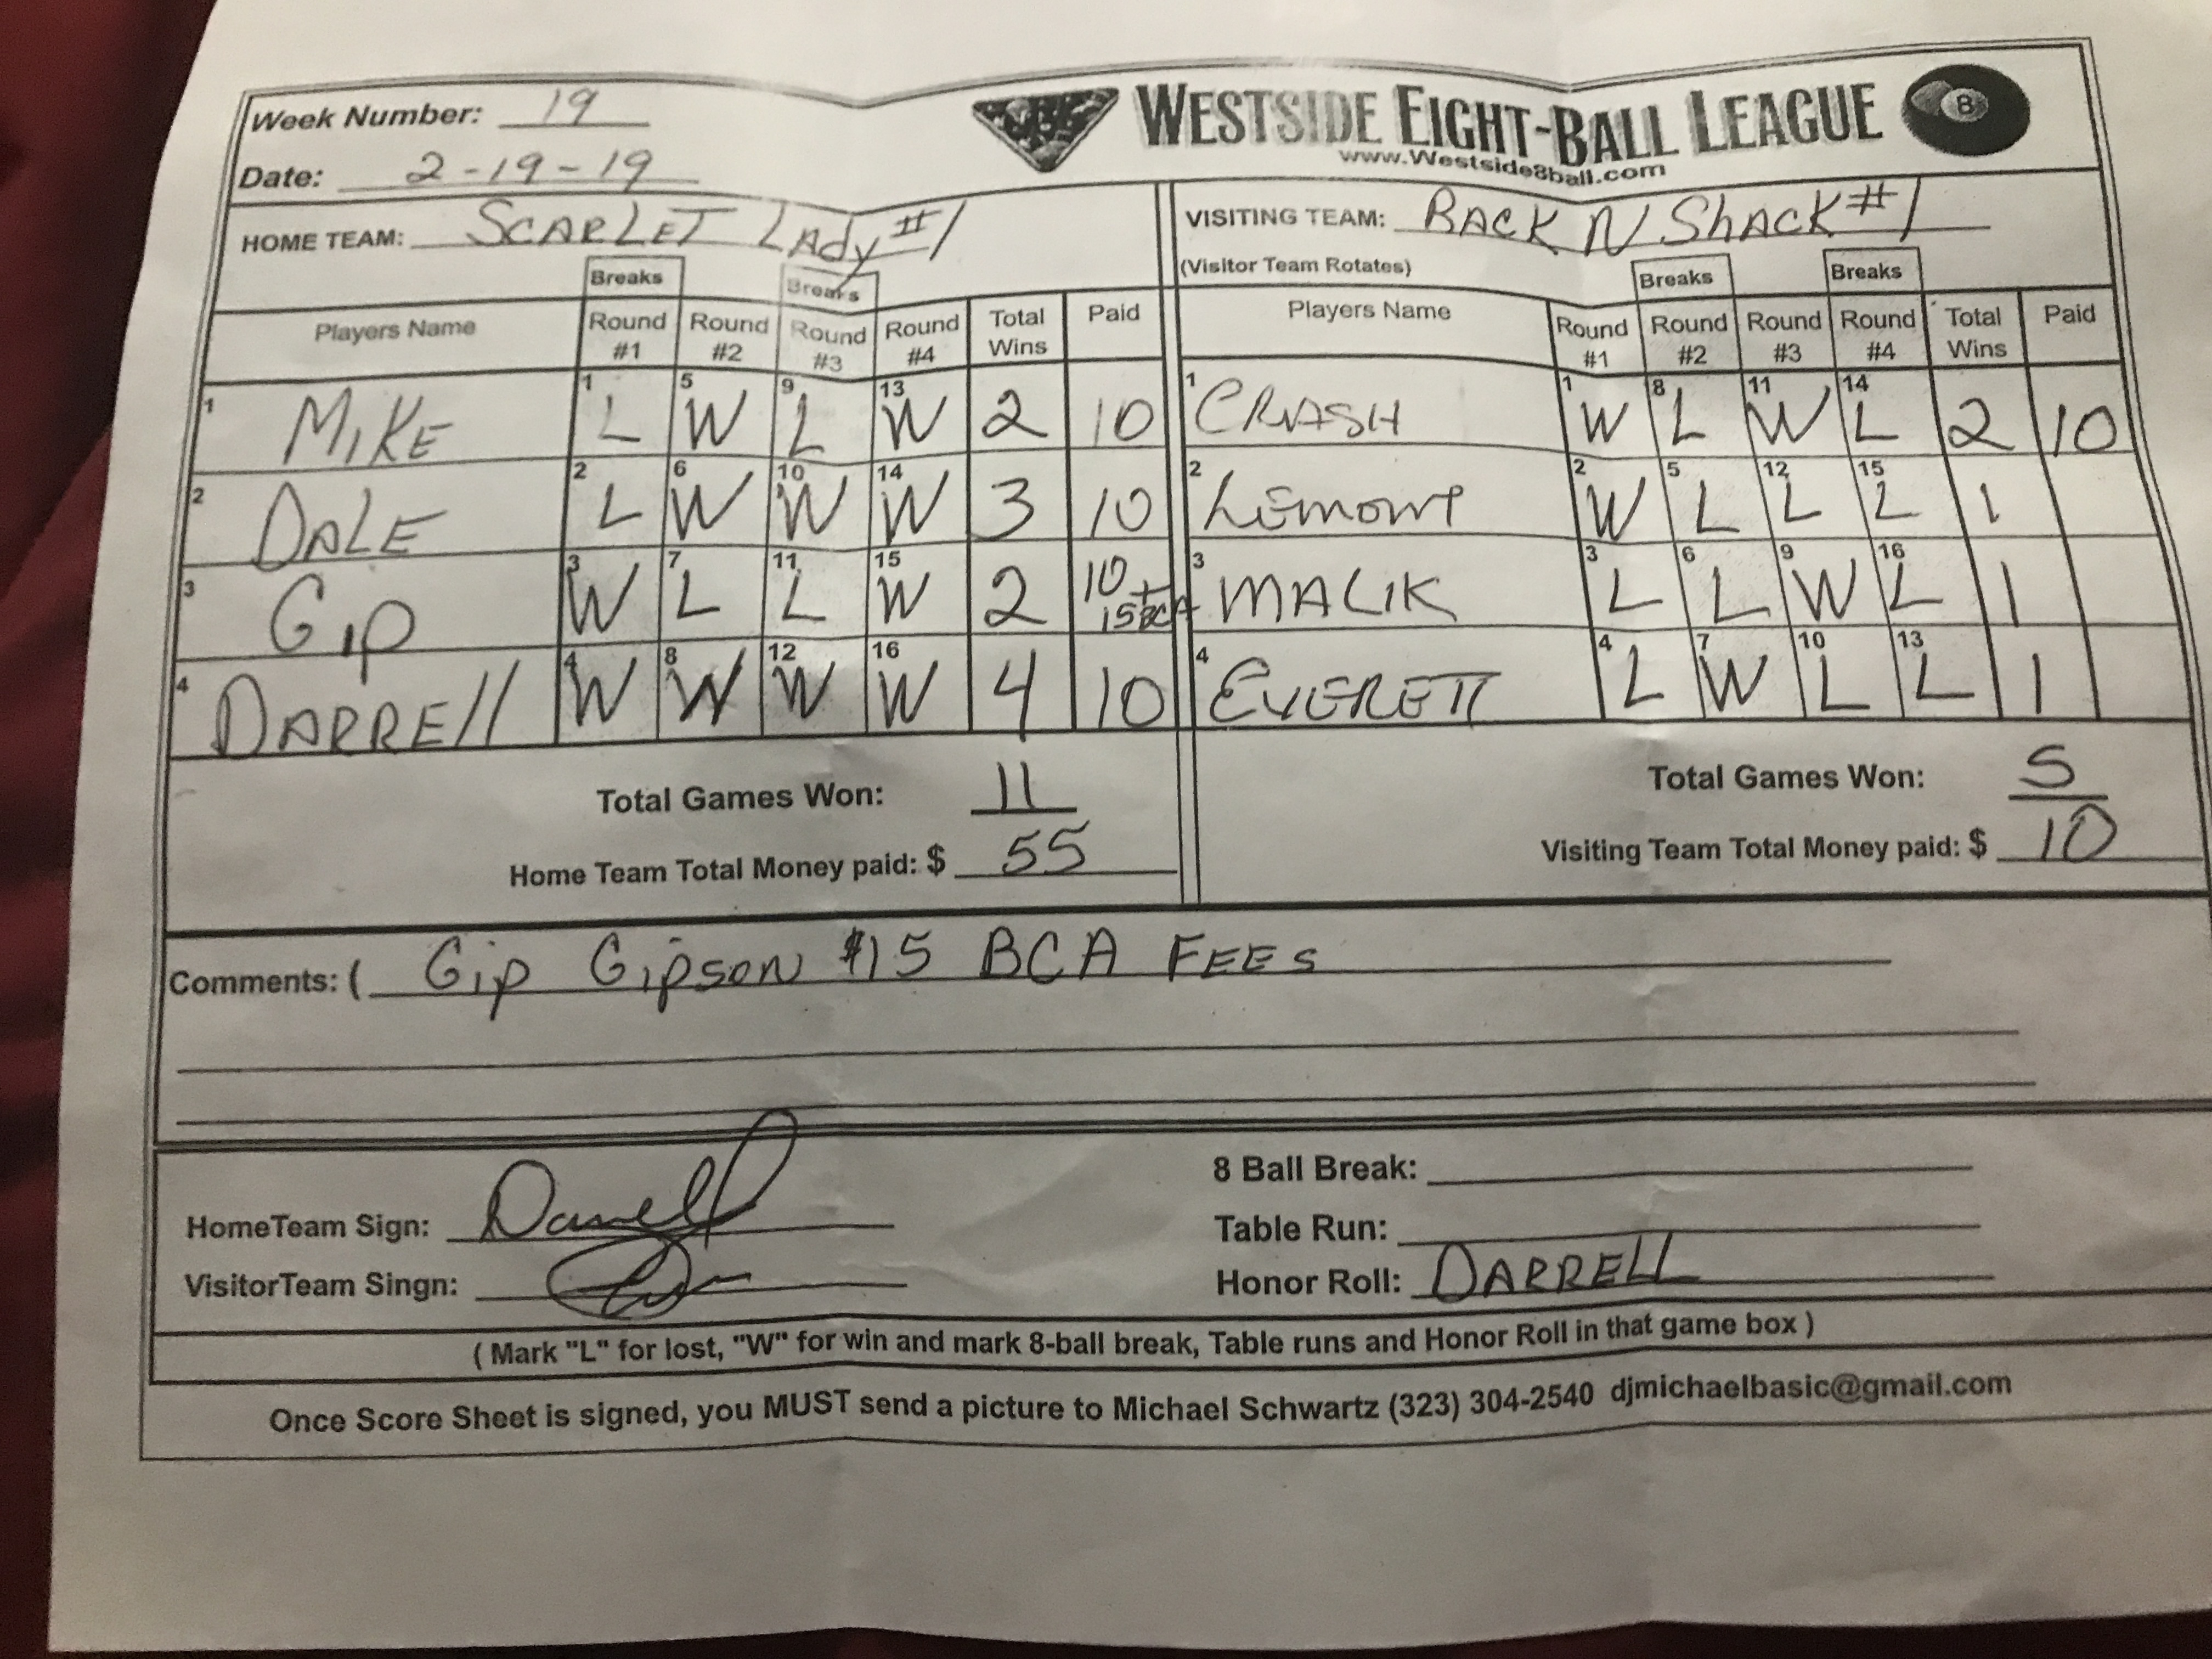 Week Number: 19
WESTSIDE EIGHT-BALL LEAGUE 8
www.Westside8ball.com
Date: 2-19-19
HOME TEAM: SCARLET LADy #1
VISITING TEAM: BACK N SHACK #1
(Visitor Team Rotates)
Breaks Breaks Breaks Breaks
Players Name Round #1 Round #2 Round #3 Round #4 Total Wins Paid Players Name Round #1 Round #2 Round #3 Round #4 Total Wins Paid
1 MIKE 1 L 5 W 9 L 13 W 2 10 1 CRASH 1 W 8 L 11 W 14 L 2 10
2 DALE 2 L 6 W 10 W 14 W 3 10 2 LEMONT 2 W 5 L 12 L 15 L 1
3 Gip 3 W 7 L 11 L 15 W 2 10 + 15 BCA 3 MALIK 3 L 6 L 9 W 16 L 1
4 DARRELL 4 W 8 W 12 W 16 W 4 10 4 EVERETT 4 L 7 W 10 L 13 L 1
Total Games Won: 11 Total Games Won: 5
Home Team Total Money paid: $ 55 Visiting Team Total Money paid: $ 10
Comments: ( Gip Gipson $15 BCA FEES
8 Ball Break:
HomeTeam Sign: Darrell Table Run:
VisitorTeam Singn: Honor Roll: DARRELL
( Mark "L" for lost, "W" for win and mark 8-ball break, Table runs and Honor Roll in that game box )
Once Score Sheet is signed, you MUST send a picture to Michael Schwartz (323) 304-2540 djmichaelbasic@gmail.com